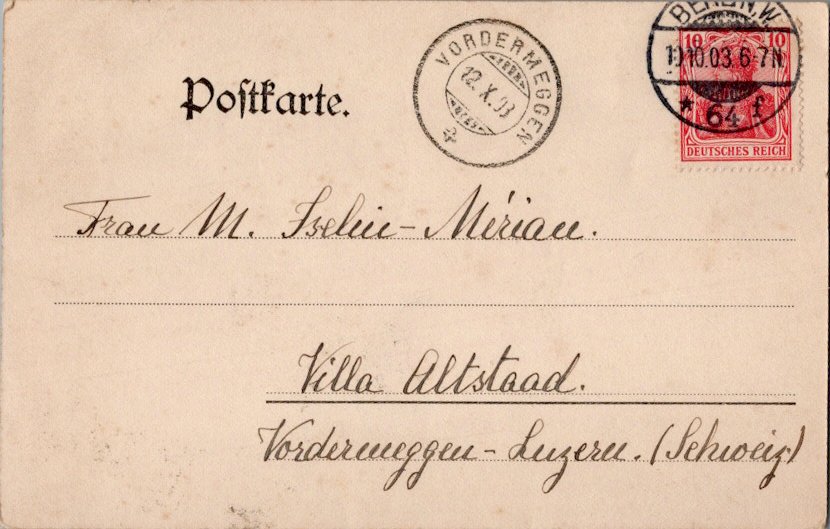 Postkarte.
VORDERMEGGEN
12.X.03
BERLIN.W.
10.10.03.6-7N
* 64 f
10 10
DEUTSCHES REICH
Frau M. Iselin-Mérian.
Villa Altstaad.
Vordermeggen-Luzern. (Schweiz)